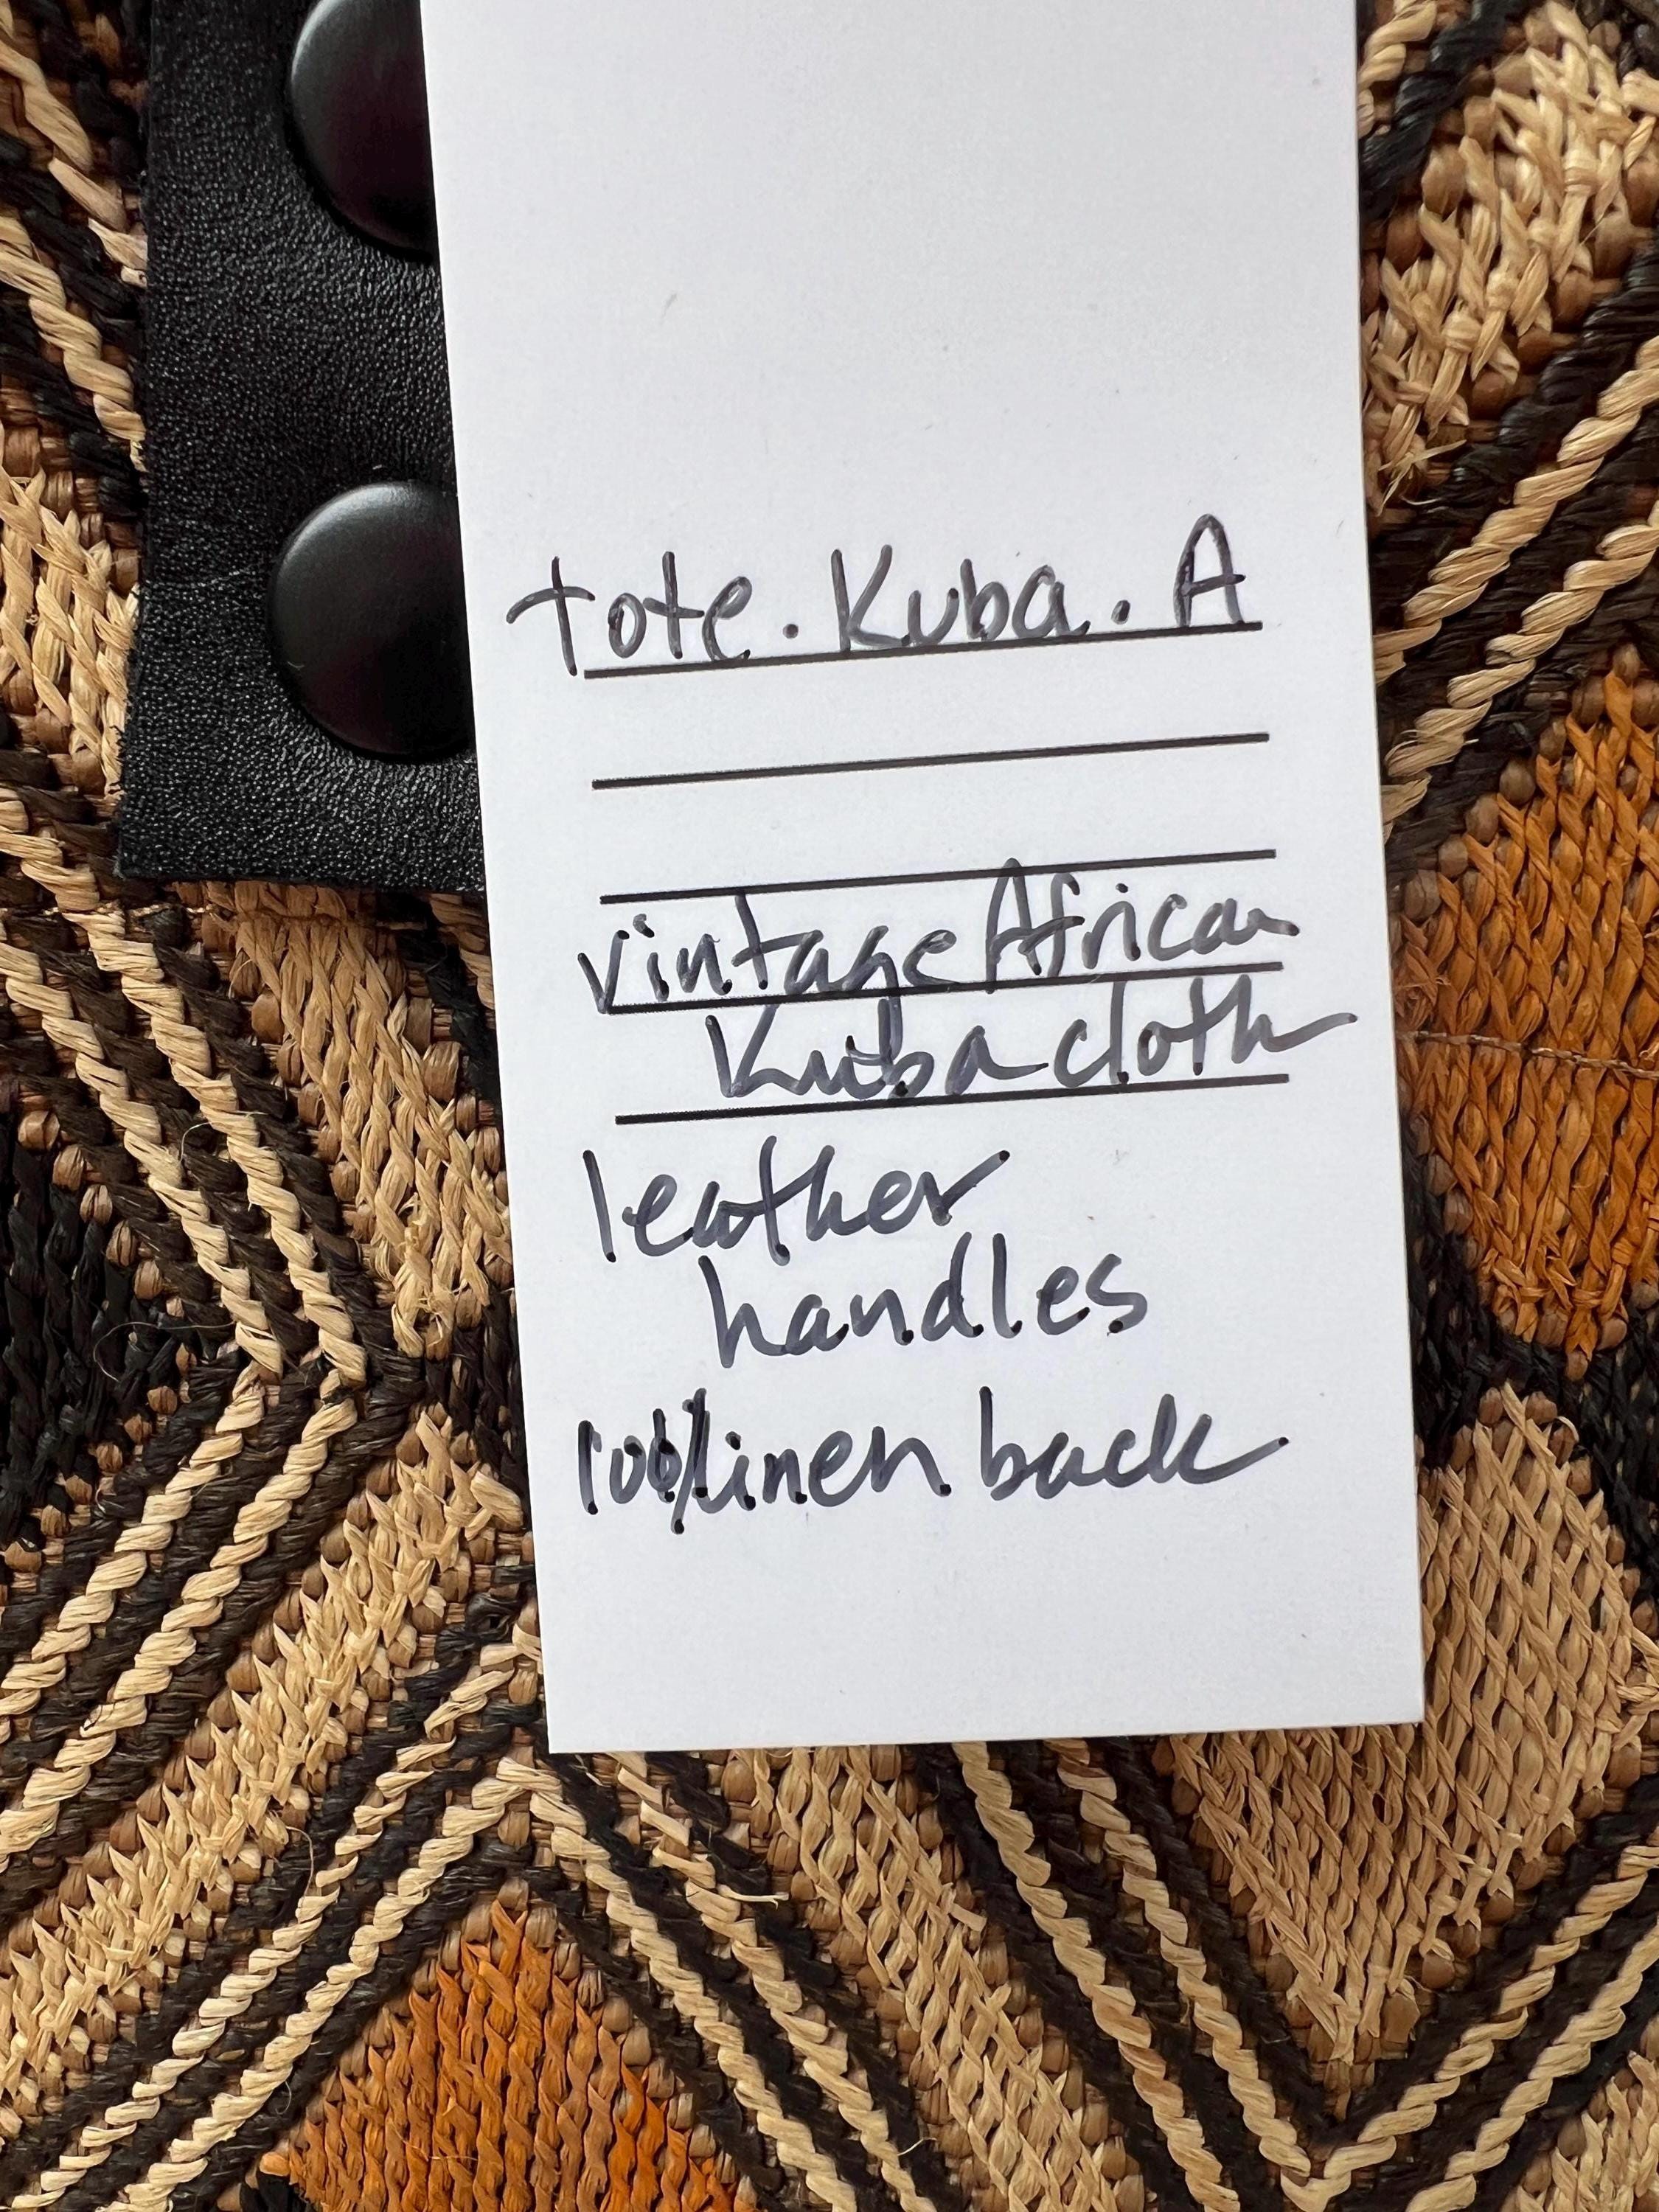 tote. Kuba. A
vintage African
Kuba cloth
leather
handles
100% linen back